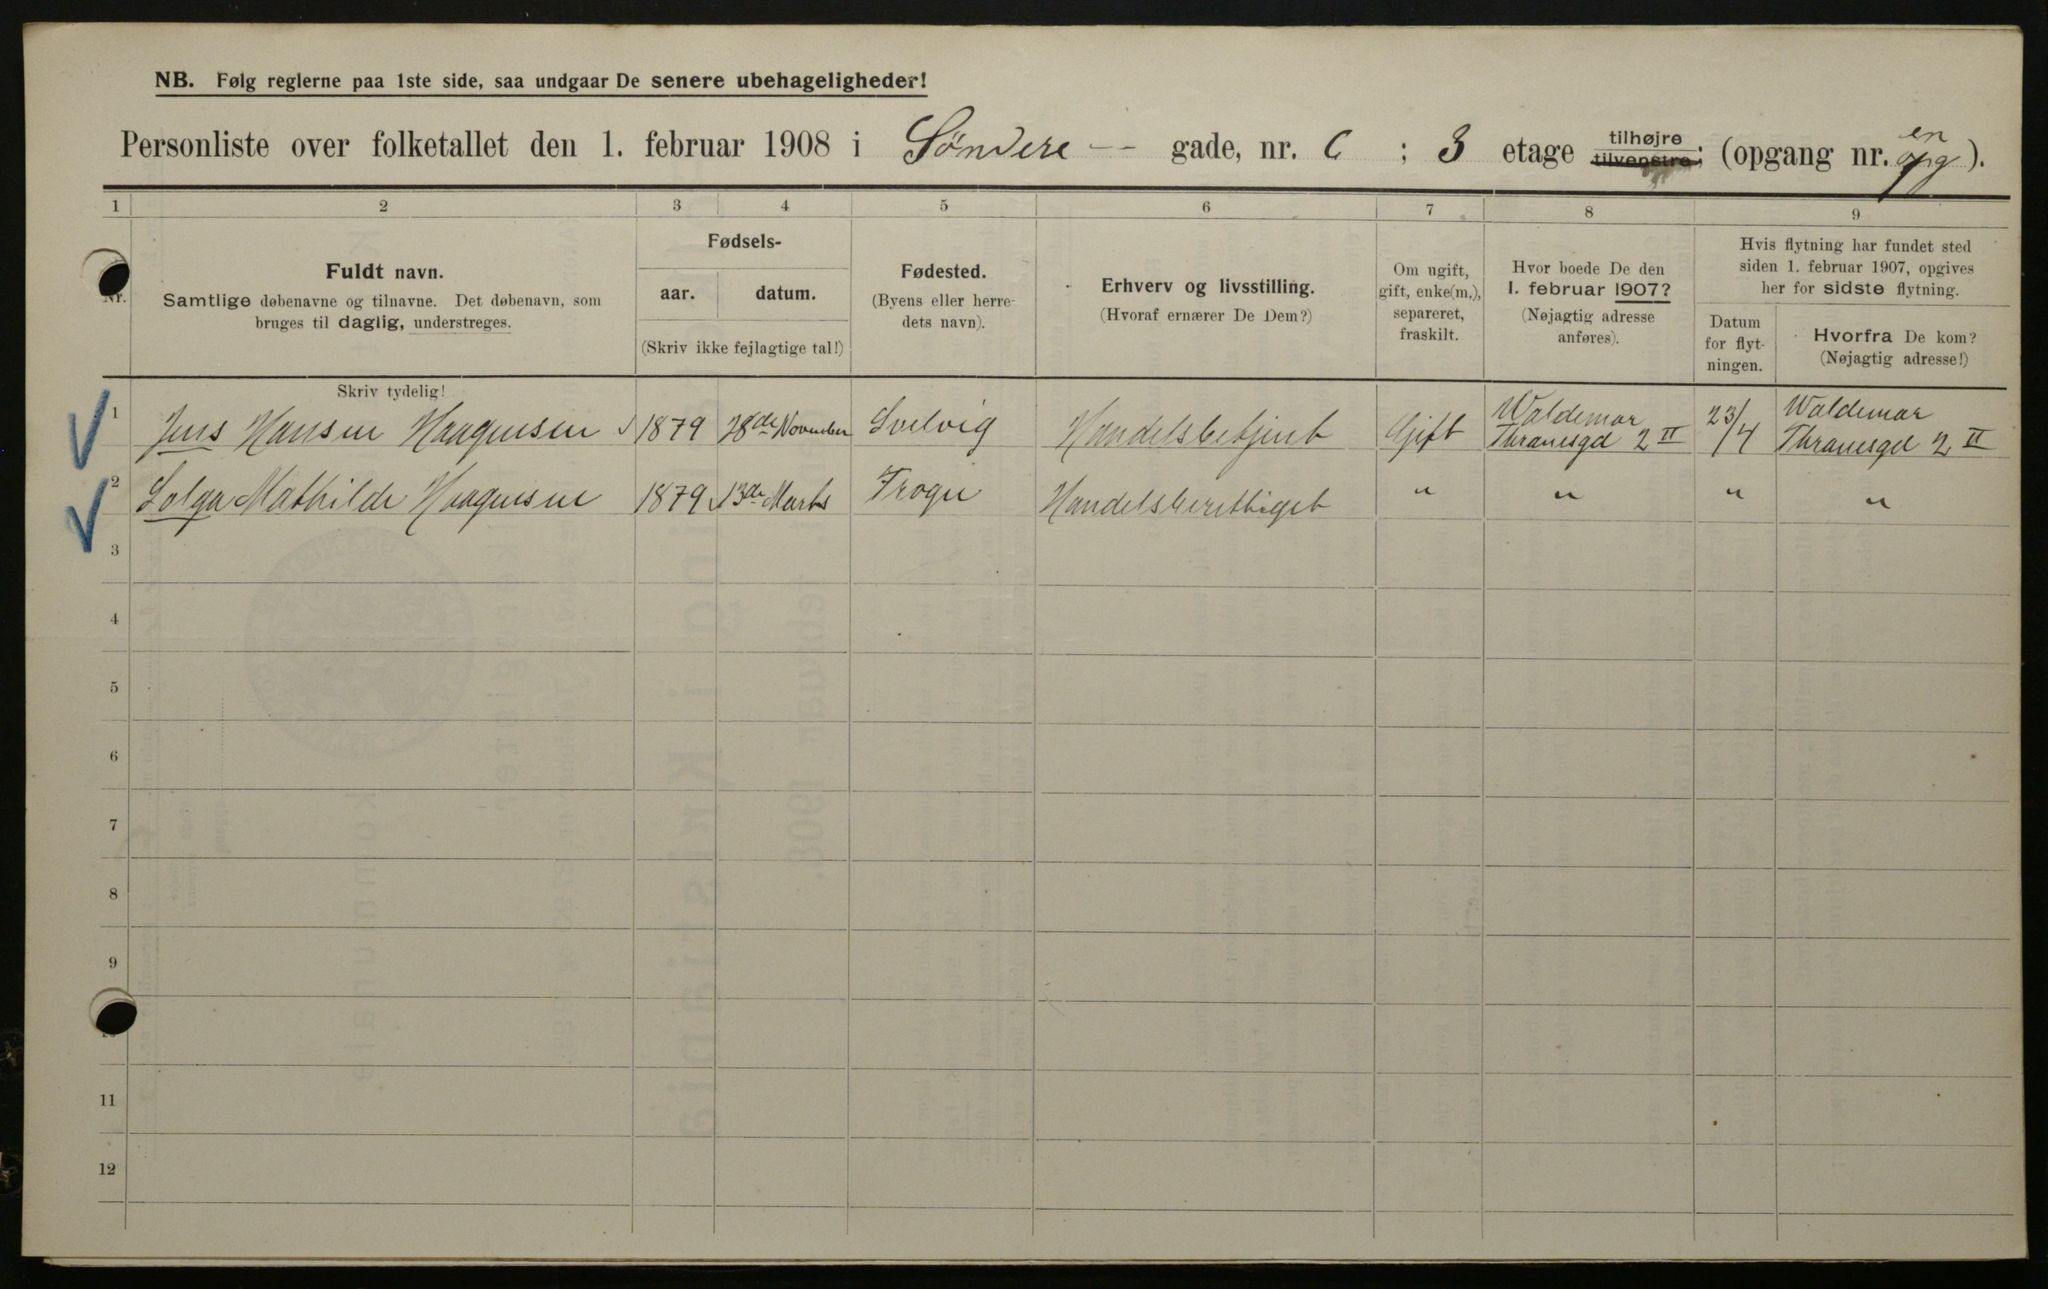 NB. Følg reglerne paa 1ste side, saa undgaar De senere ubehageligheder!
Personliste over folketallet den 1. februar 1908 i Søndere gade, nr. 6 ; 3 etage tilhøjre tilvenstre; (opgang nr. en opg ).
1 2 3 4 5 6 7 8 9
Nr.
Fuldt navn.
Samtlige døbenavne og tilnavne. Det døbenavn, som
bruges til daglig, understreges.
Fødsels-
aar. datum.
(Skriv ikke fejlagtige tal!)
Fødested.
(Byens eller herre-
dets navn).
Erhverv og livsstilling.
(Hvoraf ernærer De Dem?)
Om ugift,
gift, enke(m.),
separeret,
fraskilt.
Hvor boede De den
1. februar 1907?
(Nøjagtig adresse
anføres).
Hvis flytning har fundet sted
siden 1. februar 1907, opgives
her for sidste flytning.
Datum
for flyt-
ningen.
Hvorfra De kom?
(Nøjagtig adresse!)
Skriv tydelig!
1 Jens Hansen Haagensen 1879 28de November Svelvig Handelsbetjent Gift Waldemar Thranesgd 2 II 23/4 Waldemar Thranesgd 2 II
2 Solga Mathilde Haagensen 1879 13de Marts Frogn Handelsberettiget " " " "
3
4
5
6
7
8
9
10
11
12